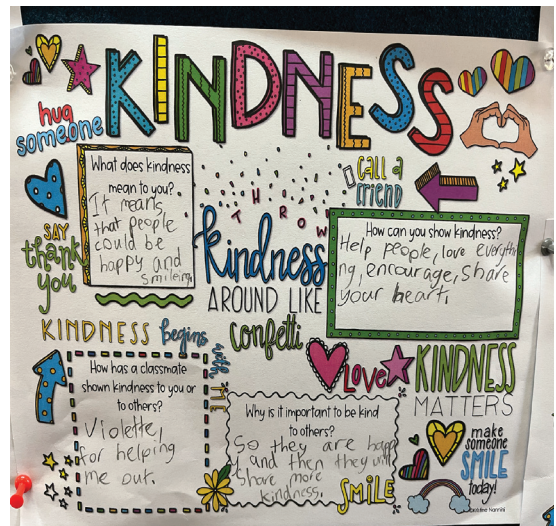 KINDNESS
hug
someone
What does kindness
mean to you?
It means,
that people
could be
happy and
smileing.
CALL A
FRIEND
SAY
thank
you
THROW
kindness
AROUND LIKE
confetti
How can you show kindness?
Help people, love everythi
ng, encourage, share
your heart.
KINDNESS begins
with
ME
How has a classmate
shown kindness to you or
to others?
Violette,
for helping
me out.
LOVE
KINDNESS
MATTERS
Why is it important to be kind
to others?
So they are happ
y and then they will
share more
kindness.
SMILE
make
someone
SMILE
today!